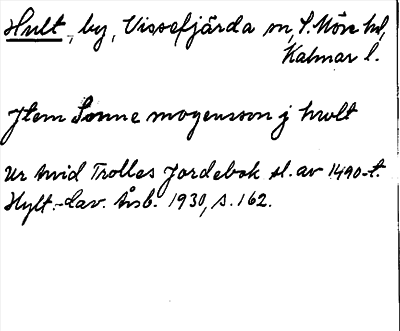 Hult, by, Vissefjärda sn, S. Möre hd,
Kalmar l.
Jtem Sonne mogensson j hwlt
Ur Arvid Trolles Jordebok sl. av 1490-t.
Hylt.-Cav. Årsb. 1930, s. 162.